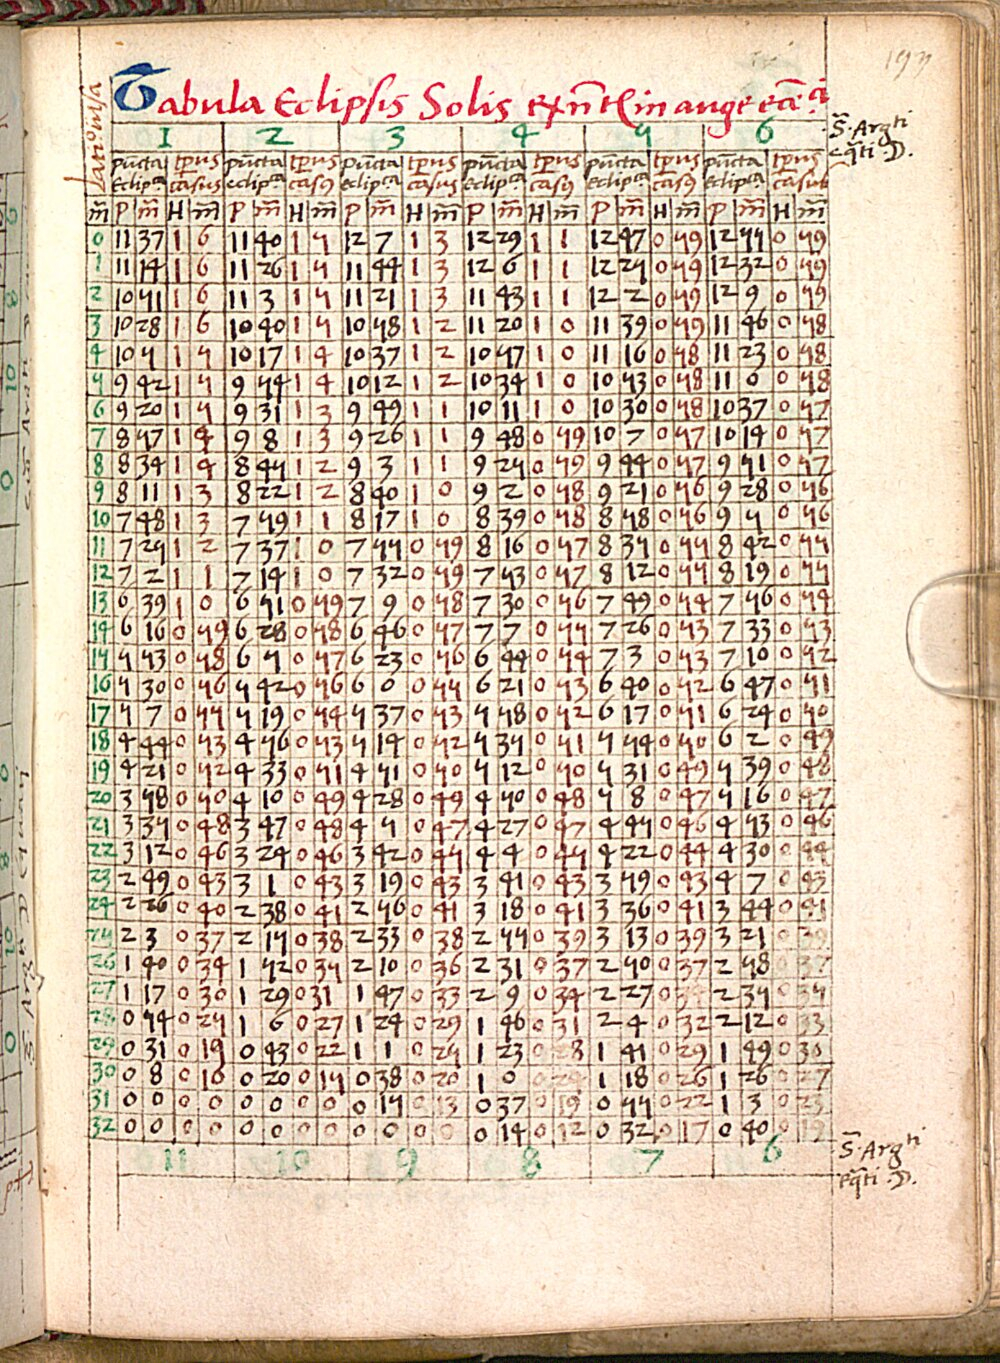 Latitudo visa
Tabula Eclipsis Solis exñtl in auge ecc̃a
1 2 3 4 5 6
S̃. Argti
eq̃ti D.
pũcta tp̃us pũcta tp̃us pũcta tp̃us pũcta tp̃us pũcta tp̃us pũcta tp̃us
eclipca casus eclipca casus eclipca casus eclipca casus eclipca casus eclipca casus
m̃ P m̃ H m̃ P m̃ H m̃ P m̃ H m̃ P m̃ H m̃ P m̃ H m̃ P m̃ H m̃
0 11 37 1 6 11 40 1 5 12 7 1 3 12 29 1 1 12 47 0 59 12 55 0 59
1 11 14 1 6 11 26 1 5 11 44 1 3 12 6 1 1 12 25 0 59 12 32 0 59
2 10 51 1 6 11 3 1 5 11 21 1 3 11 43 1 1 12 2 0 59 12 9 0 59
3 10 28 1 6 10 40 1 5 10 58 1 2 11 20 1 0 11 39 0 59 11 46 0 58
4 10 5 1 5 10 17 1 4 10 37 1 2 10 57 1 0 11 16 0 58 11 23 0 58
5 9 42 1 5 9 54 1 4 10 12 1 2 10 34 1 0 10 53 0 58 11 0 0 58
6 9 20 1 5 9 31 1 3 9 49 1 1 10 11 1 0 10 30 0 58 10 37 0 57
7 8 57 1 4 9 8 1 3 9 26 1 1 9 48 0 59 10 7 0 57 10 14 0 57
8 8 34 1 4 8 45 1 2 9 3 1 1 9 25 0 59 9 44 0 57 9 51 0 57
9 8 11 1 3 8 22 1 2 8 40 1 0 9 2 0 58 9 21 0 56 9 28 0 56
10 7 48 1 3 7 59 1 1 8 17 1 0 8 39 0 58 8 58 0 56 9 5 0 56
11 7 25 1 2 7 37 1 0 7 55 0 59 8 16 0 57 8 35 0 55 8 42 0 55
12 7 2 1 1 7 14 1 0 7 32 0 59 7 53 0 57 8 12 0 55 8 19 0 55
13 6 39 1 0 6 51 0 59 7 9 0 58 7 30 0 56 7 49 0 54 7 56 0 54
14 6 16 0 59 6 28 0 58 6 46 0 57 7 7 0 55 7 26 0 53 7 33 0 53
15 5 53 0 58 6 5 0 57 6 23 0 56 6 44 0 54 7 3 0 53 7 10 0 52
16 5 30 0 56 5 42 0 56 6 0 0 55 6 21 0 53 6 40 0 52 6 47 0 51
17 5 7 0 55 5 19 0 54 5 37 0 53 5 58 0 52 6 17 0 51 6 24 0 50
18 4 44 0 53 4 56 0 53 5 14 0 52 5 35 0 51 5 54 0 50 6 2 0 49
19 4 21 0 52 4 33 0 51 4 51 0 50 5 12 0 50 5 31 0 49 5 39 0 48
20 3 58 0 50 4 10 0 49 4 28 0 49 4 50 0 48 5 8 0 47 5 16 0 47
21 3 35 0 48 3 47 0 48 4 5 0 47 4 27 0 47 4 45 0 46 4 53 0 46
22 3 12 0 46 3 24 0 46 3 42 0 45 4 4 0 45 4 22 0 44 4 30 0 44
23 2 49 0 43 3 1 0 43 3 19 0 43 3 41 0 43 3 59 0 43 4 7 0 43
24 2 26 0 40 2 38 0 41 2 56 0 41 3 18 0 41 3 36 0 41 3 44 0 41
25 2 3 0 37 2 15 0 38 2 33 0 38 2 55 0 39 3 13 0 39 3 21 0 39
26 1 40 0 34 1 52 0 35 2 10 0 36 2 31 0 37 2 50 0 37 2 58 0 37
27 1 17 0 30 1 29 0 31 1 47 0 33 2 9 0 34 2 27 0 2 35 0 35
28 0 54 0 25 1 6 0 27 1 24 0 29 1 46 0 31 2 4 0 32 2 12 0 33
29 0 31 0 19 0 43 0 22 1 1 0 25 1 23 0 28 1 41 0 29 1 49 0 30
30 0 8 0 10 0 20 0 15 0 38 0 20 1 0 0 25 1 18 0 26 1 26 0 27
31 0 0 0 0 0 0 0 0 0 15 0 13 0 37 0 19 0 55 0 22 1 3 0 23
32 0 0 0 0 0 0 0 0 0 0 0 0 0 14 0 12 0 32 0 17 0 40 0 19
11 10 9 8 7 6
S̃. Argti
eq̃ti D.